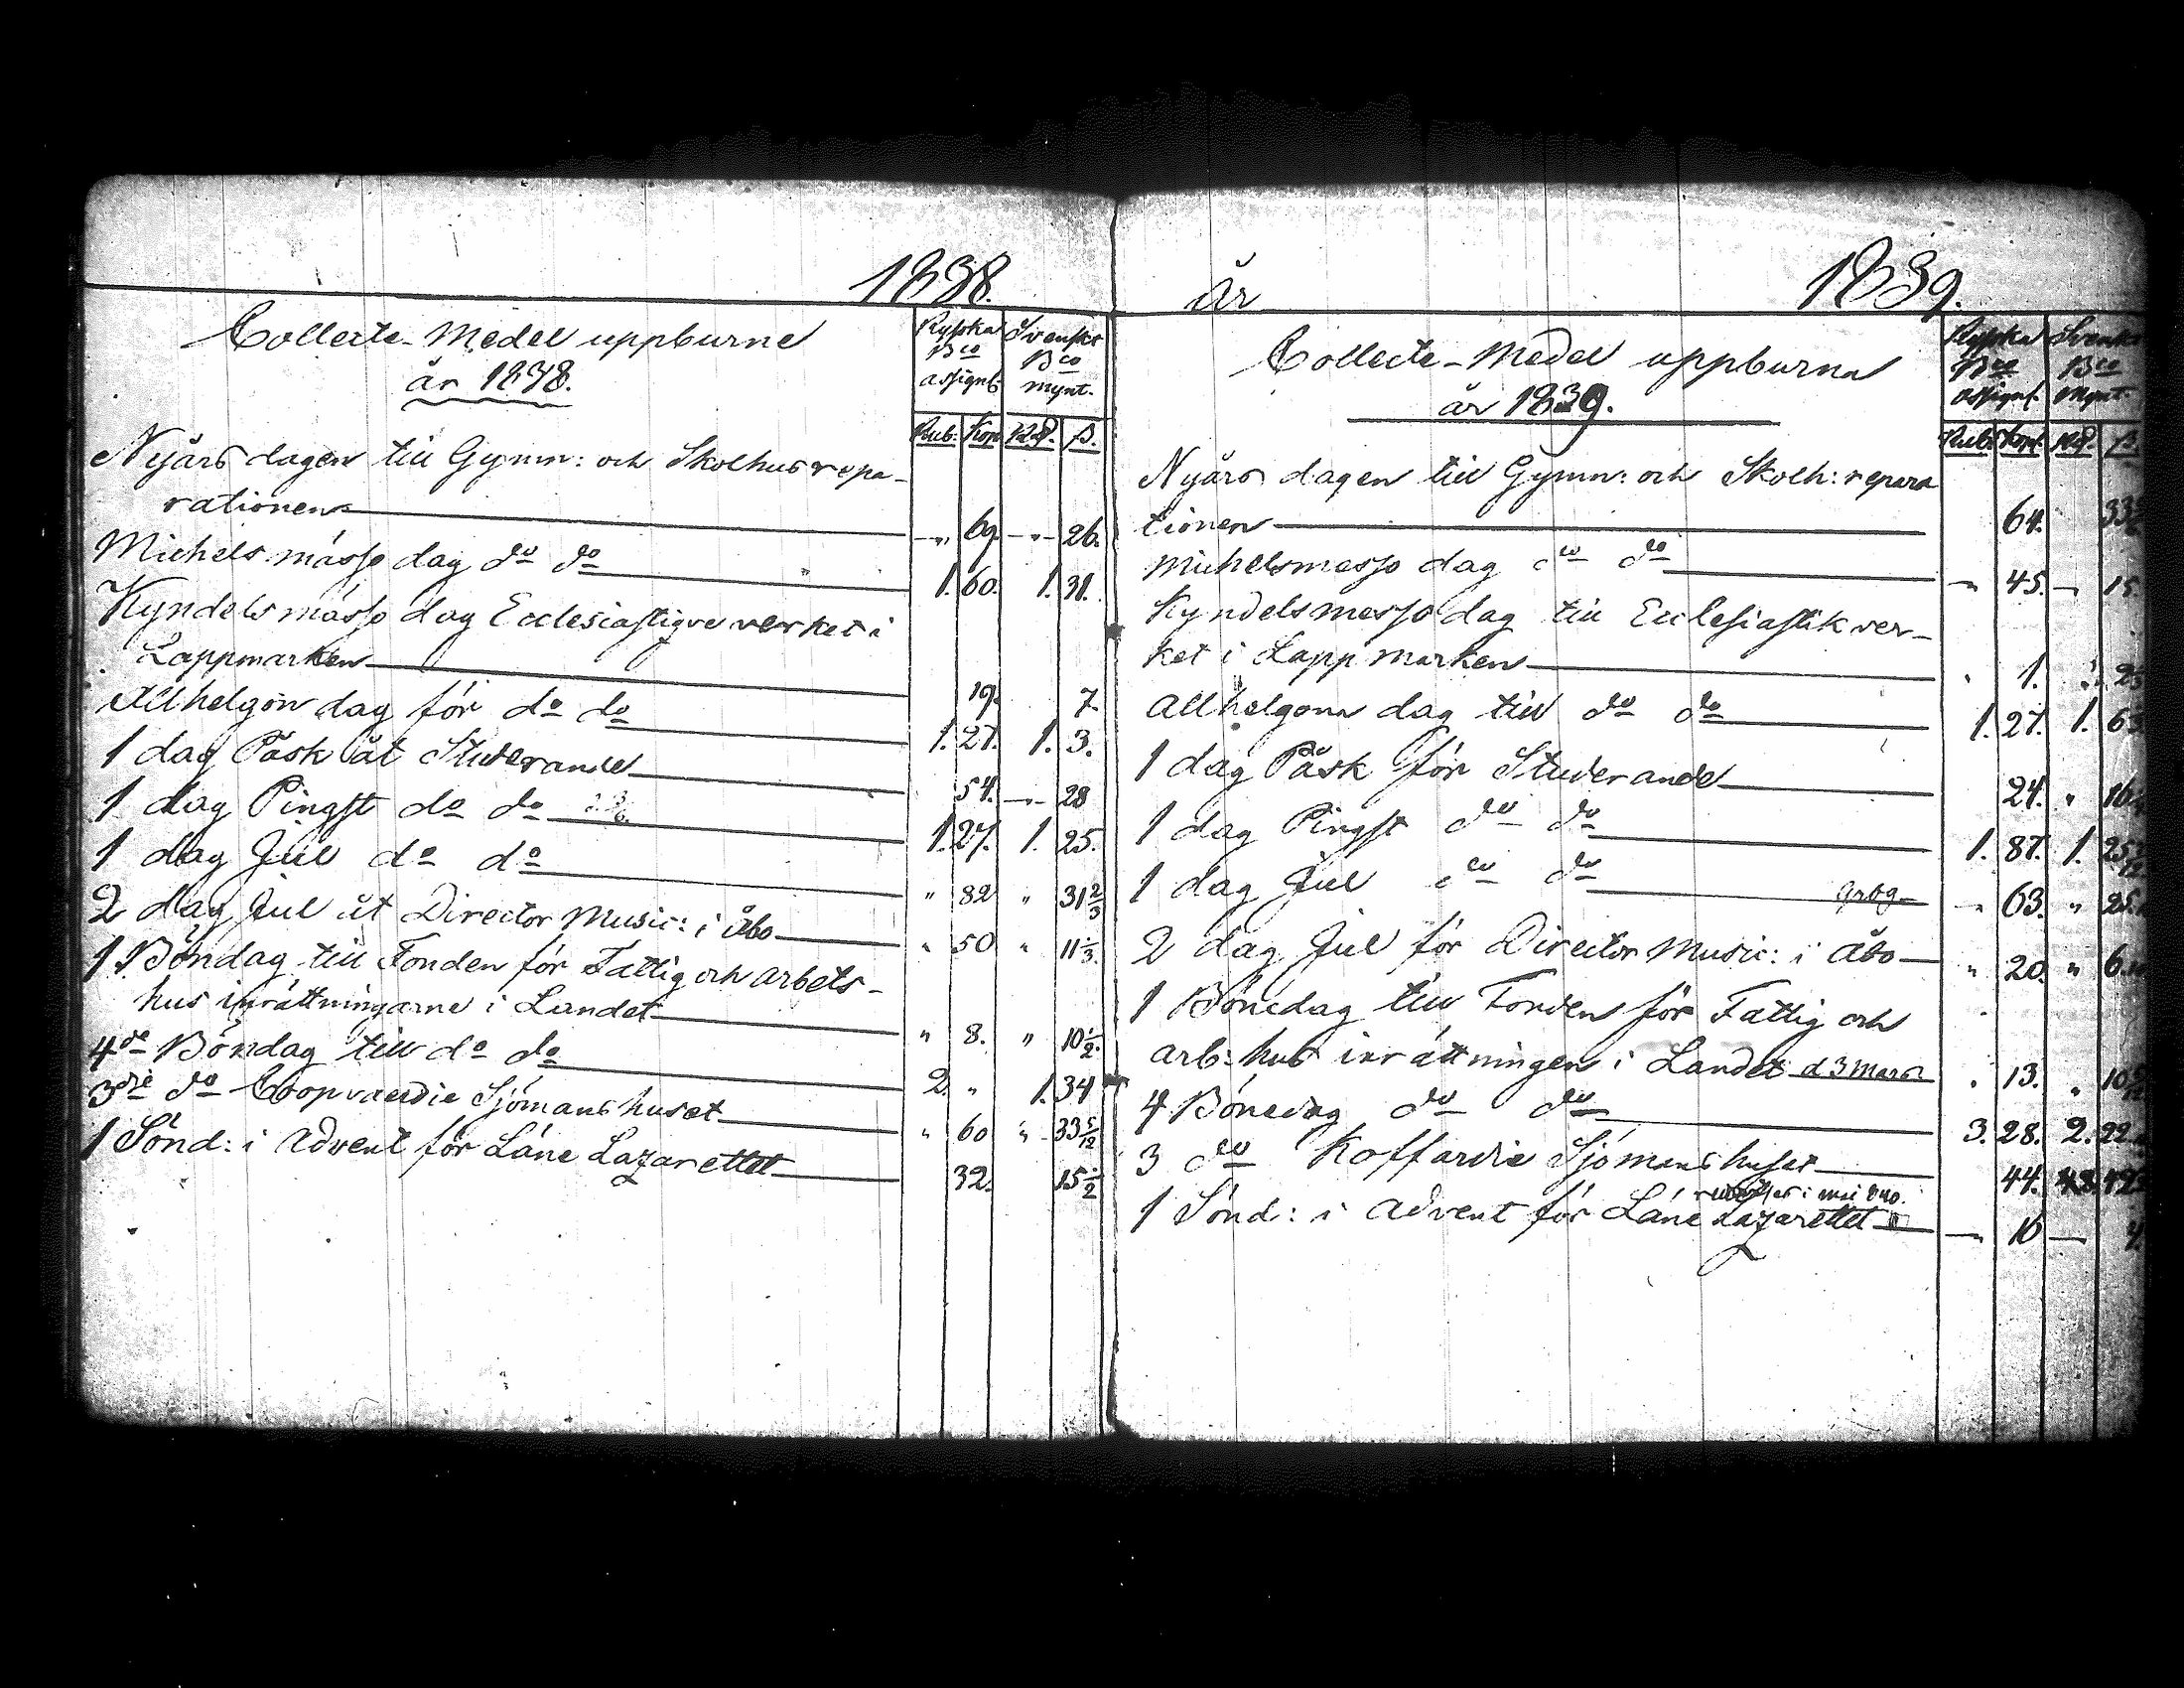 1838.
Collecte-Medel uppburne
år 1838.
Ryska Svenskt
Bco Bco
assignt. mynt.
Rub. Kop. Rd. ß.
Nyårs dagen till Gymn: och Skolhus repa-
rationen — „ 69. — „ — 26.
Michels mässo dag do do 1. 60. 1. 31.
Kyndels mässo dag Ecclesiastique verket i
Lappmarken 19. 7.
Allhelgon dag för do do 1. 27. 1. 3.
1 dag Påsk åt Studerande 54. — 28
1 dag Pingst do do 1. 27. 1. 25.
1 dag Jul do do „ 82 „ 31 2/3
2 dag Jul åt Director Music: i Åbo „ 50 „ 11 1/3.
1 Böndag till Fonden för Fattig och arbets-
hus inrättningarne i Landet „ 8. „ 10 1/2.
4de Böndag till do do 2. „ 1. 34
3die do Coopvaerdie Sjömanshuset „ 60 „ 33 5/12
1 Sönd: i Advent för Läne Lazarettet 32. 15 1/2
år 1839.
Collecte-Medel uppburna
år 1839.
Ryska Svenskt
Bco Bco
assignt. mynt.
Rub. Kop. Rd. ß.
Nyårs dagen till Gymn: och Skolh: repara
tionen 64. 33
Michelsmesso dag do do — 45. — 15
Kyndelsmesso dag till Ecclesiastik ver-
ket i Lappmarken 1.
Allhelgona dag till do do 1. 27. 1. 6
1 dag Påsk för Studerande 24. „ 16
1 dag Pingst do do 1. 87. 1. 25
1 dag Jul do do — 63. „ 25.
2 dag Jul för Director Music: i Åbo „ 20. „ 6
1 Bönedag till Fonden för Fattig och
arb: hus inrättningen i Landet d 3 Mars „ 13. „ 10
4 Bönedag do do 3. 28. 2. 22
3 do Koffardie Sjömans huset 44.
i maj 840.
1 Sönd: i Advent för Läne Lazarettet — 16 — 4